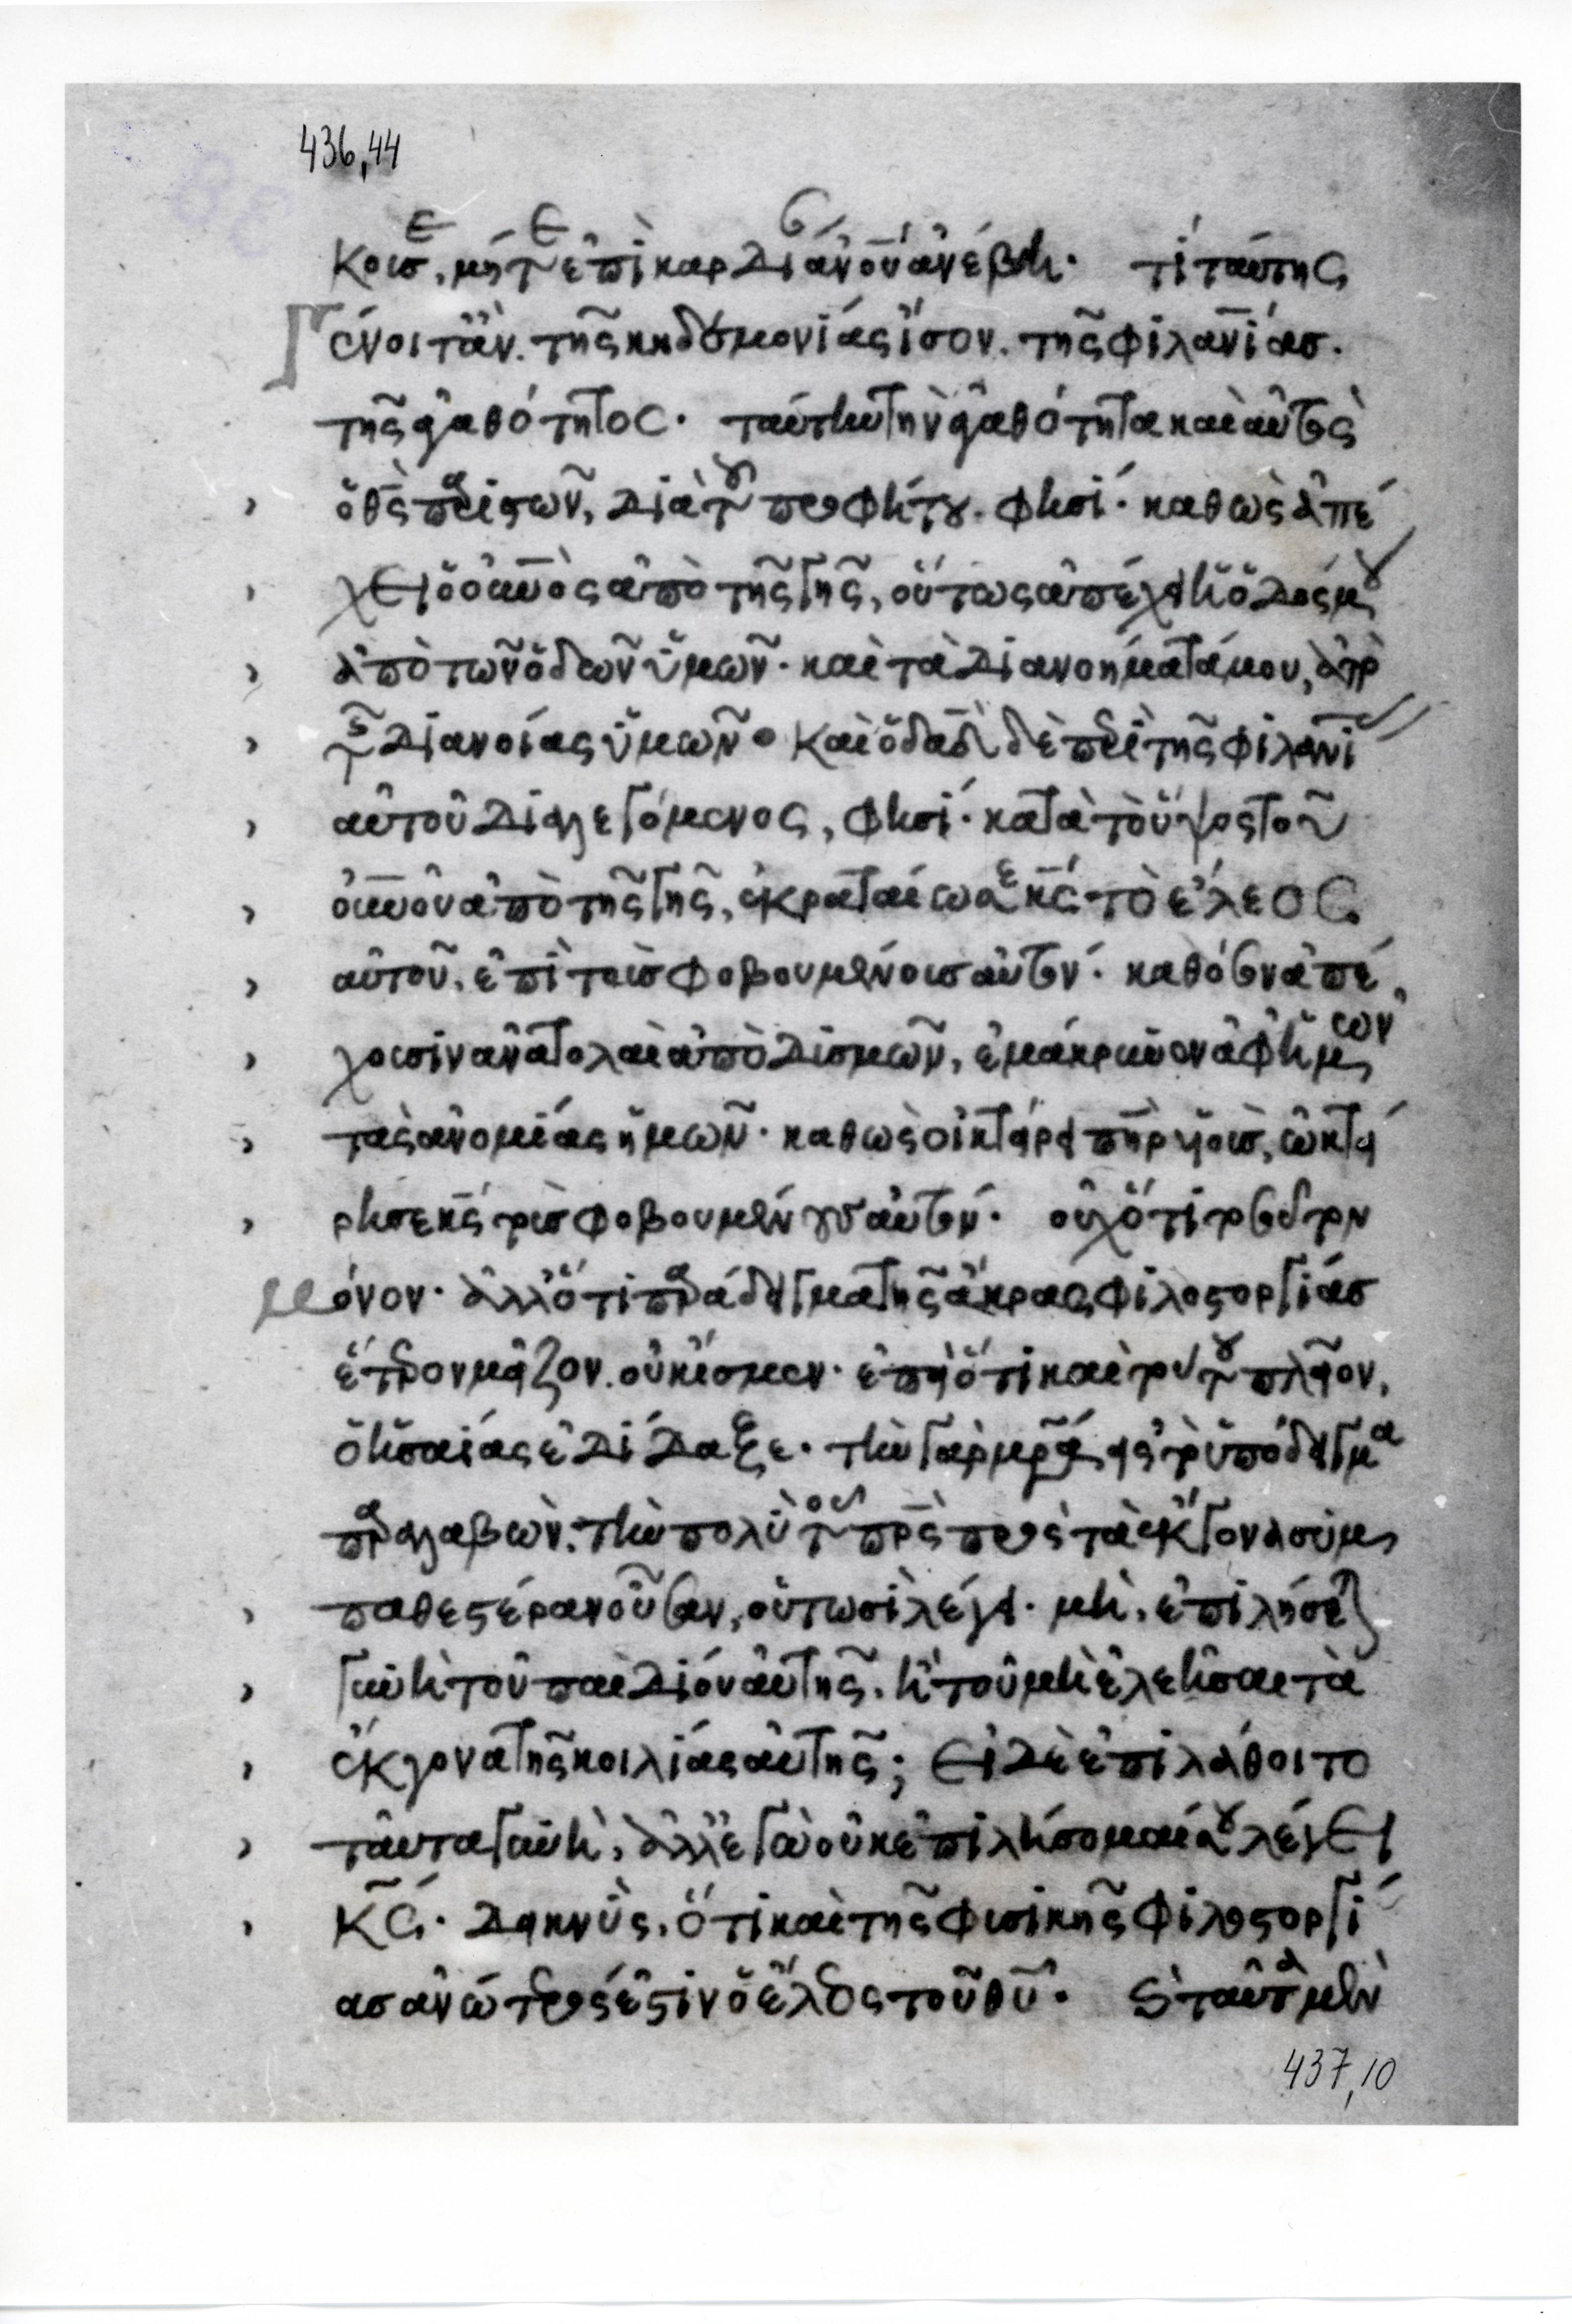 436,44
κουσε, μήτε ἐπὶ καρδίαν ἀνοῦ ἀνέβη· τί ταύτης
γένοιτ' ἂν τῆς κηδεμονίας ἴσον. τῆς φιλανίας.
τῆς ἀγαθότητος· ταύτην τὴν ἀγαθότητα καὶ αὐτὸς
ὁ θς παριστῶν, διὰ τοῦ προφήτου φησί· καθὼς ἀπέ
χει ὁ οὐνὸς ἀπὸ τῆς γῆς, οὕτως ἀπέχει ἡ ὁδός μου
ἀπὸ τῶν ὁδῶν ὑμῶν· καὶ τὰ διανοήματά μου, ἀπὸ
τῆς διανοίας ὑμῶν· καὶ ὁ δαδ δὲ περὶ τῆς φιλανί
αὐτοῦ διαλεγόμενος, φησί· κατὰ τὸ ὕψος τοῦ
οὐνοῦ ἀπὸ τῆς γῆς, ἐκραταίωσε κς τὸ ἔλεος
αὐτοῦ, ἐπὶ τοὺς φοβουμένους αὐτόν· καθόσον ἀπέ
χουσιν ἀνατολαὶ ἀπὸ δυσμῶν, ἐμάκρυνεν ἀφ' ἡμῶν
τὰς ἀνομίας ἡμῶν· καθὼς οἰκτείρει πηρ υἱοὺς, ᾠκτεί
ρησε κς τοὺς φοβουμένους αὐτόν· οὐχ ὅτι τοσοῦτον
μόνον· ἀλλ' ὅτι παράδειγμα τῆς ἄκρας φιλοστοργίας
ἕτερον μεῖζον οὐκ ἴσμεν· ἐπεὶ ὅτι καὶ τούτου πλεῖον,
ὁ ἡσαΐας ἐδίδαξε· τὴν γὰρ μρα εἰς τὸ ὑπόδειγμα
παραλαβὼν τὴν πολὺ τοῦ πρς πρὸς τὰ ἔκγονα συμ
παθεστέραν οὖσαν, οὑτωσὶ λέγει· μὴ ἐπιλήσεται
γυνὴ τοῦ παιδίου αὐτῆς, ἢ τοῦ μὴ ἐλεῆσαι τὰ
ἔκγονα τῆς κοιλίας αὐτῆς; εἰ δὲ ἐπιλάθοιτο
ταῦτα γυνὴ, ἀλλ' ἐγὼ οὐκ ἐπιλήσομαί σου λέγει
κς· δεικνὺς, ὅτι καὶ τῆς φυσικῆς φιλοστοργί
ας ἀνώτερός ἐστιν ὁ ἔλεος τοῦ θυ· καὶ ταῦτα μὲν
437,10